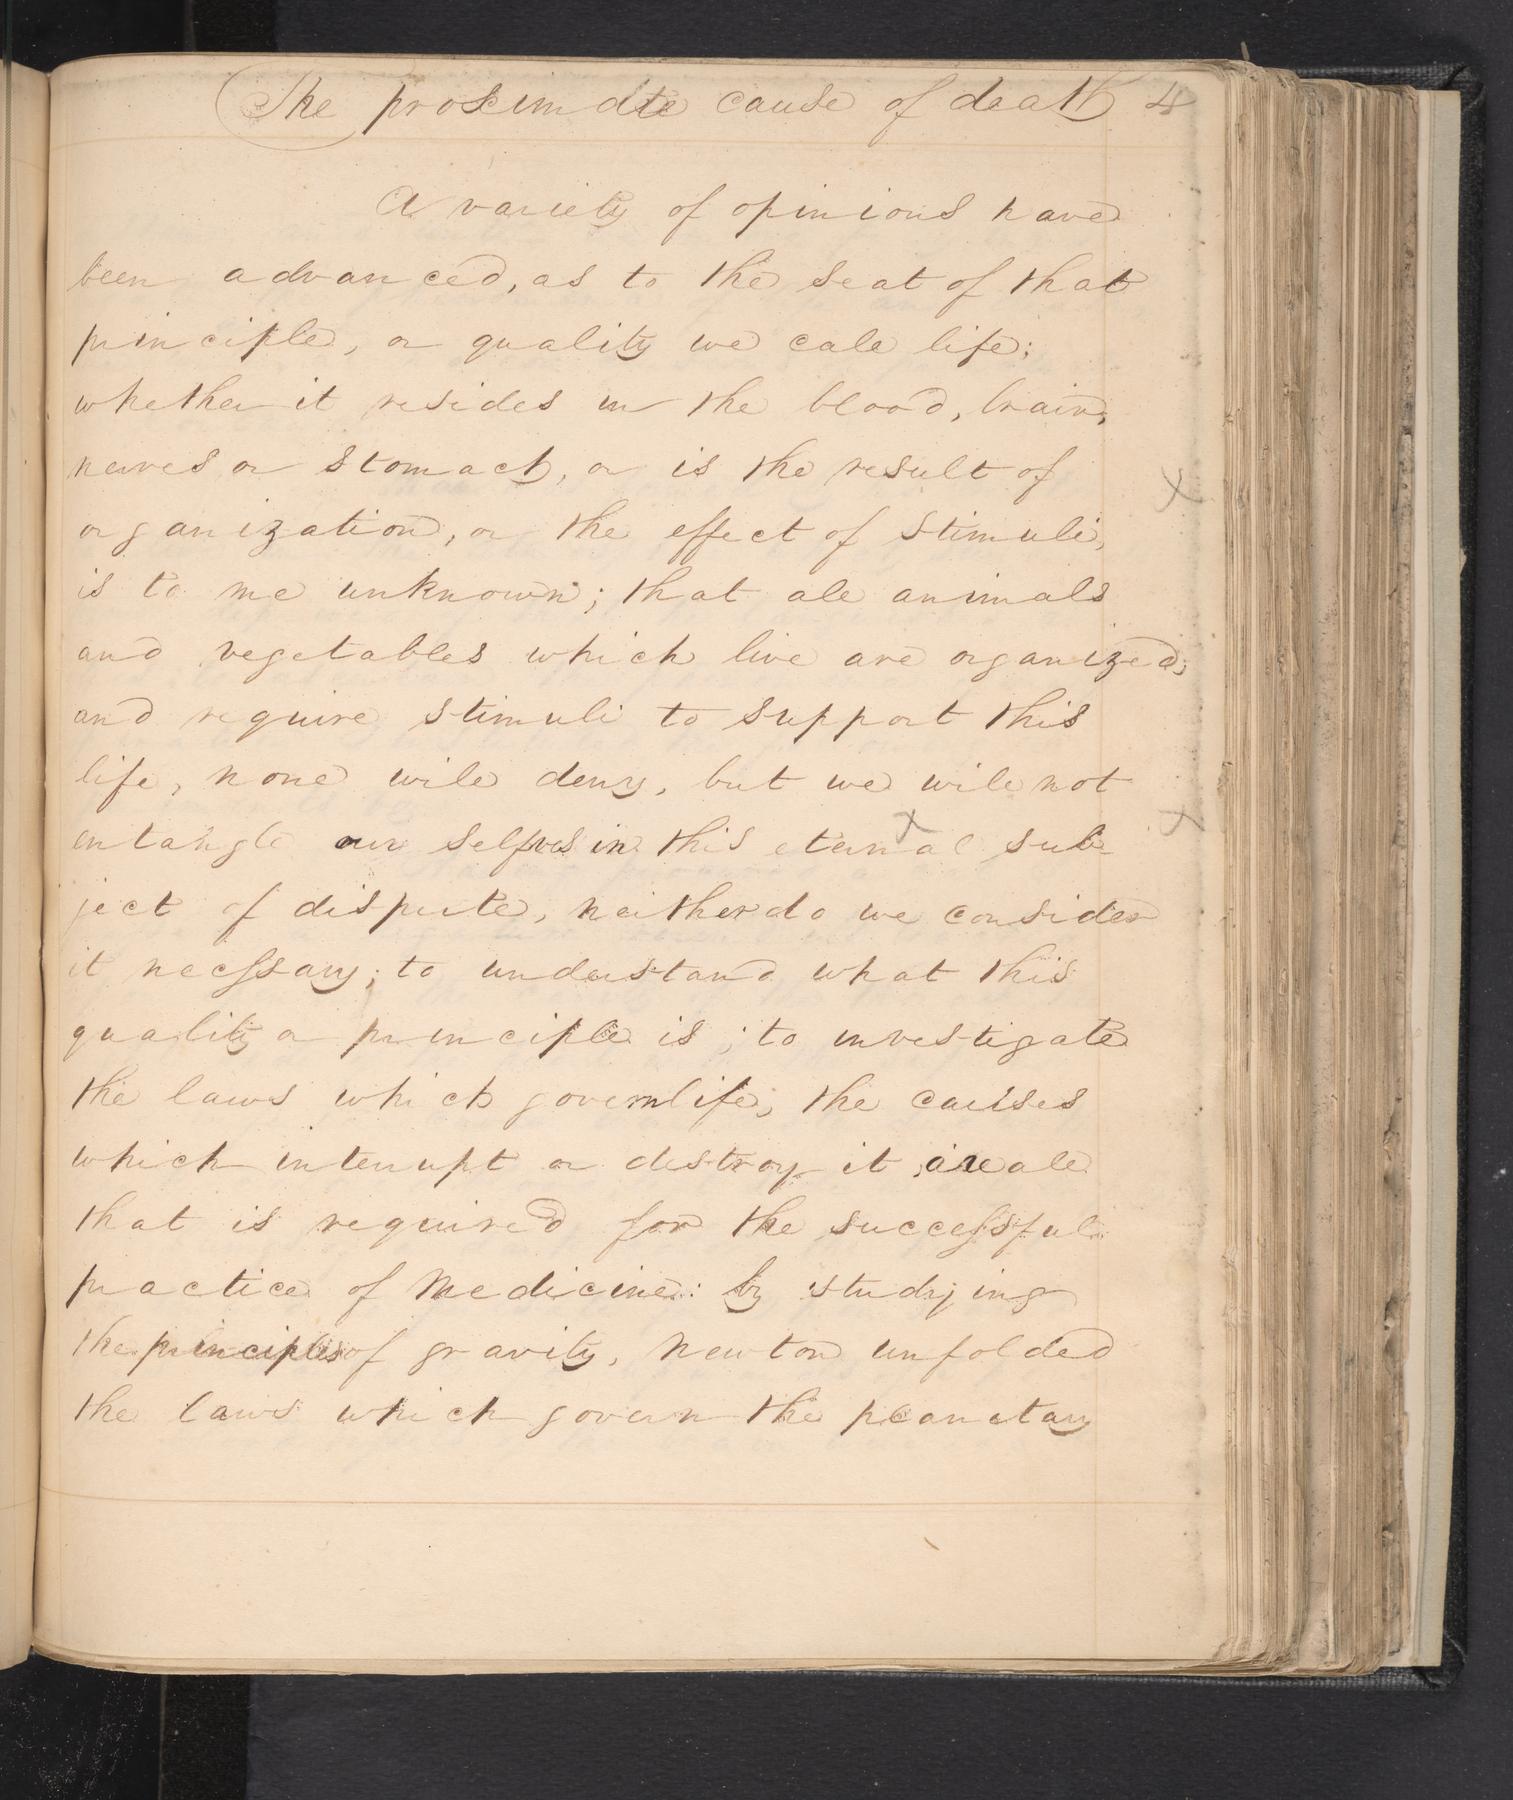 The proximate cause of death 4
A variety of opinions have
been advanced, as to the seat of that
principle, or quality we cale life;
whether it resides in the blood, brain,
nerves or stomach, or is the result of
organization, or the effect of stimuli,
is to me unknown; that ale animals
and vegetables which live are organized;
and require stimuli to support this
life, none wile deny, but we wile not
entangle our selfves in this eternal sub-
ject of dispute, neither do we consider
it necessary; to understand what this
quality or principle is; to investigate
the laws which govern life, the causes
which interrupt or destroy it, are ale
that is required for the successful
practice of Medicine: by studying
the principles of gravity, Newton unfolded
the laws which govern the planetary